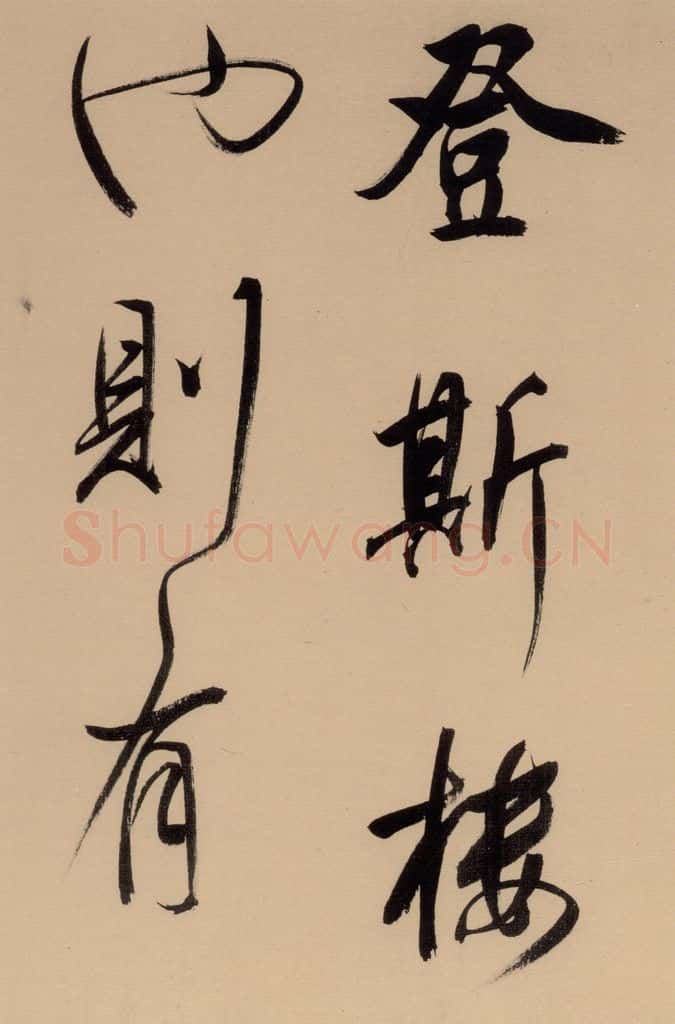 登斯樓
也則有
Shufawang.CN